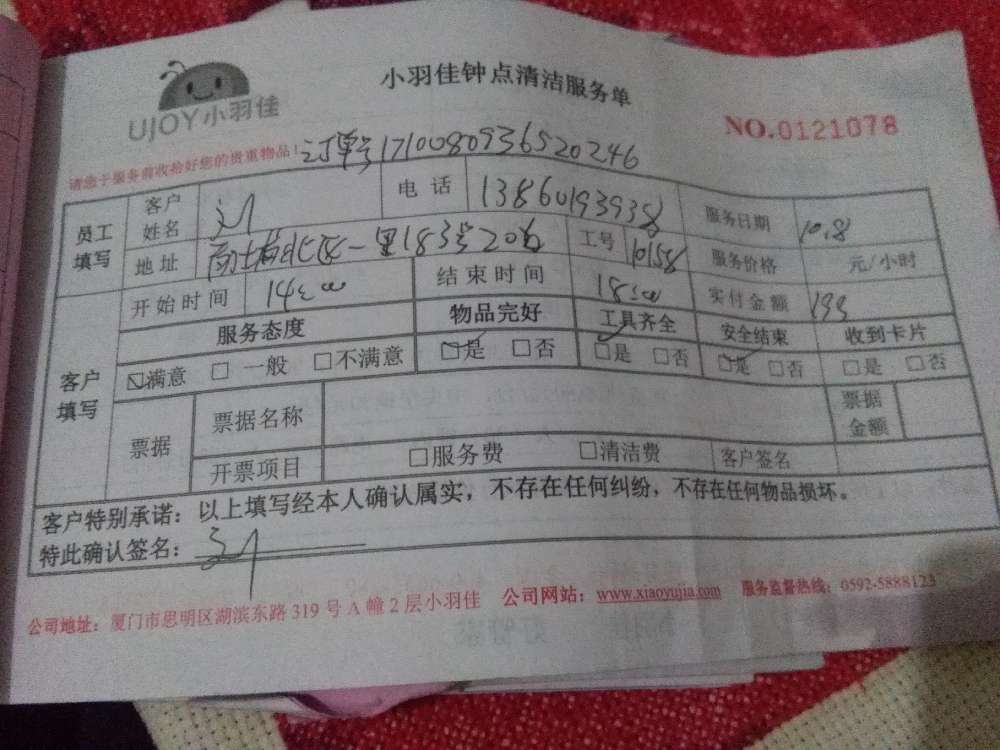 UJOY小羽佳
小羽佳钟点清洁服务单
NO.0121078
请您于服务前收拾好您的贵重物品！
订单号1710080936520246
员工填写 客户姓名 刘 电话 13860193938 服务日期 10.8
地址 北区一里183号 工号 10158 服务价格 元/小时
开始时间 14:00 结束时间 18:00 实付金额 199
客户填写 服务态度 物品完好 工具齐全 安全结束 收到卡片
☑满意 □一般 □不满意 ☑是 □否 ☑是 □否 ☑是 □否 □是 □否
票据 票据名称 票据金额
开票项目 □服务费 □清洁费 客户签名
客户特别承诺：以上填写经本人确认属实，不存在任何纠纷，不存在任何物品损坏。
特此确认签名：刘
公司地址：厦门市思明区湖滨东路319号A幢2层小羽佳 公司网站：www.xiaoyujia.com 服务监督热线：0592-5888123